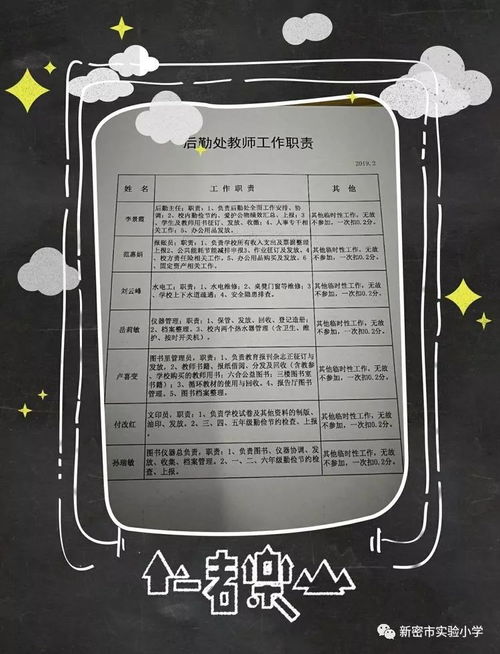 后勤处教师工作职责
2019.2
姓 名
工 作 职 责
其 他
李景霞
后勤主任：职责：1、负责后勤处全面工作安排、协
调；2、校内勤俭节约、爱护公物绩效汇总、上报；3
、学生及教师用书征订、发放、收缴；4、人事专干相
关工作；5、办公用品发放。
其他临时性工作，无故
不参加，一次扣0.2分。
范惠娟
报账员：职责：1、负责学校所有收入支出及票据整理
上报2、公共能耗节能减排申报3、作业征订及发放。4
、校方责任险相关工作。5、办公用品购买及发放。6
、固定资产相关工作。
其他临时性工作，无故
不参加，一次扣0.2分。
刘云峰
水电工：职责：1、水电维修；2、桌凳门窗等维修；3
、学校上下水道疏通；4、安全隐患排查。
其他临时性工作，无故
不参加，一次扣0.2分。
岳莉敏
仪器管理：职责：1、保管、发放、回收、登记造册；
2、档案整理。3、校内两个热水器管理（含卫生、维
护、按时开关机）。
其他临时性工作，无故
不参加，一次扣0.2分。
卢喜变
图书室管理员：职责：1、负责教育报刊杂志正征订与
发放，2、教师书籍、报纸借阅、分发及回收（含教参
、学校购买的教师用书；六合公益图书；三楼图书室
书籍）；3、循环教材的使用与回收。4、报告厅图书
管理、5、图书档案整理。
其他临时性工作，无故
不参加，一次扣0.2分。
付改红
文印员，职责：1、负责学校试卷及其他资料的制版、
油印、发放。2、三、四、五年级勤俭节约的检查、
上报。
其他临时性工作，无故
不参加，一次扣0.2分。
孙瑞敏
图书仪器总负责，职责：1、负责图书、仪器协调、发
放、收集、档案管理。2、一、二、六年级勤俭节约的检
查、上报。
其他临时性工作，无故
不参加，一次扣0.2分。
新密市实验小学